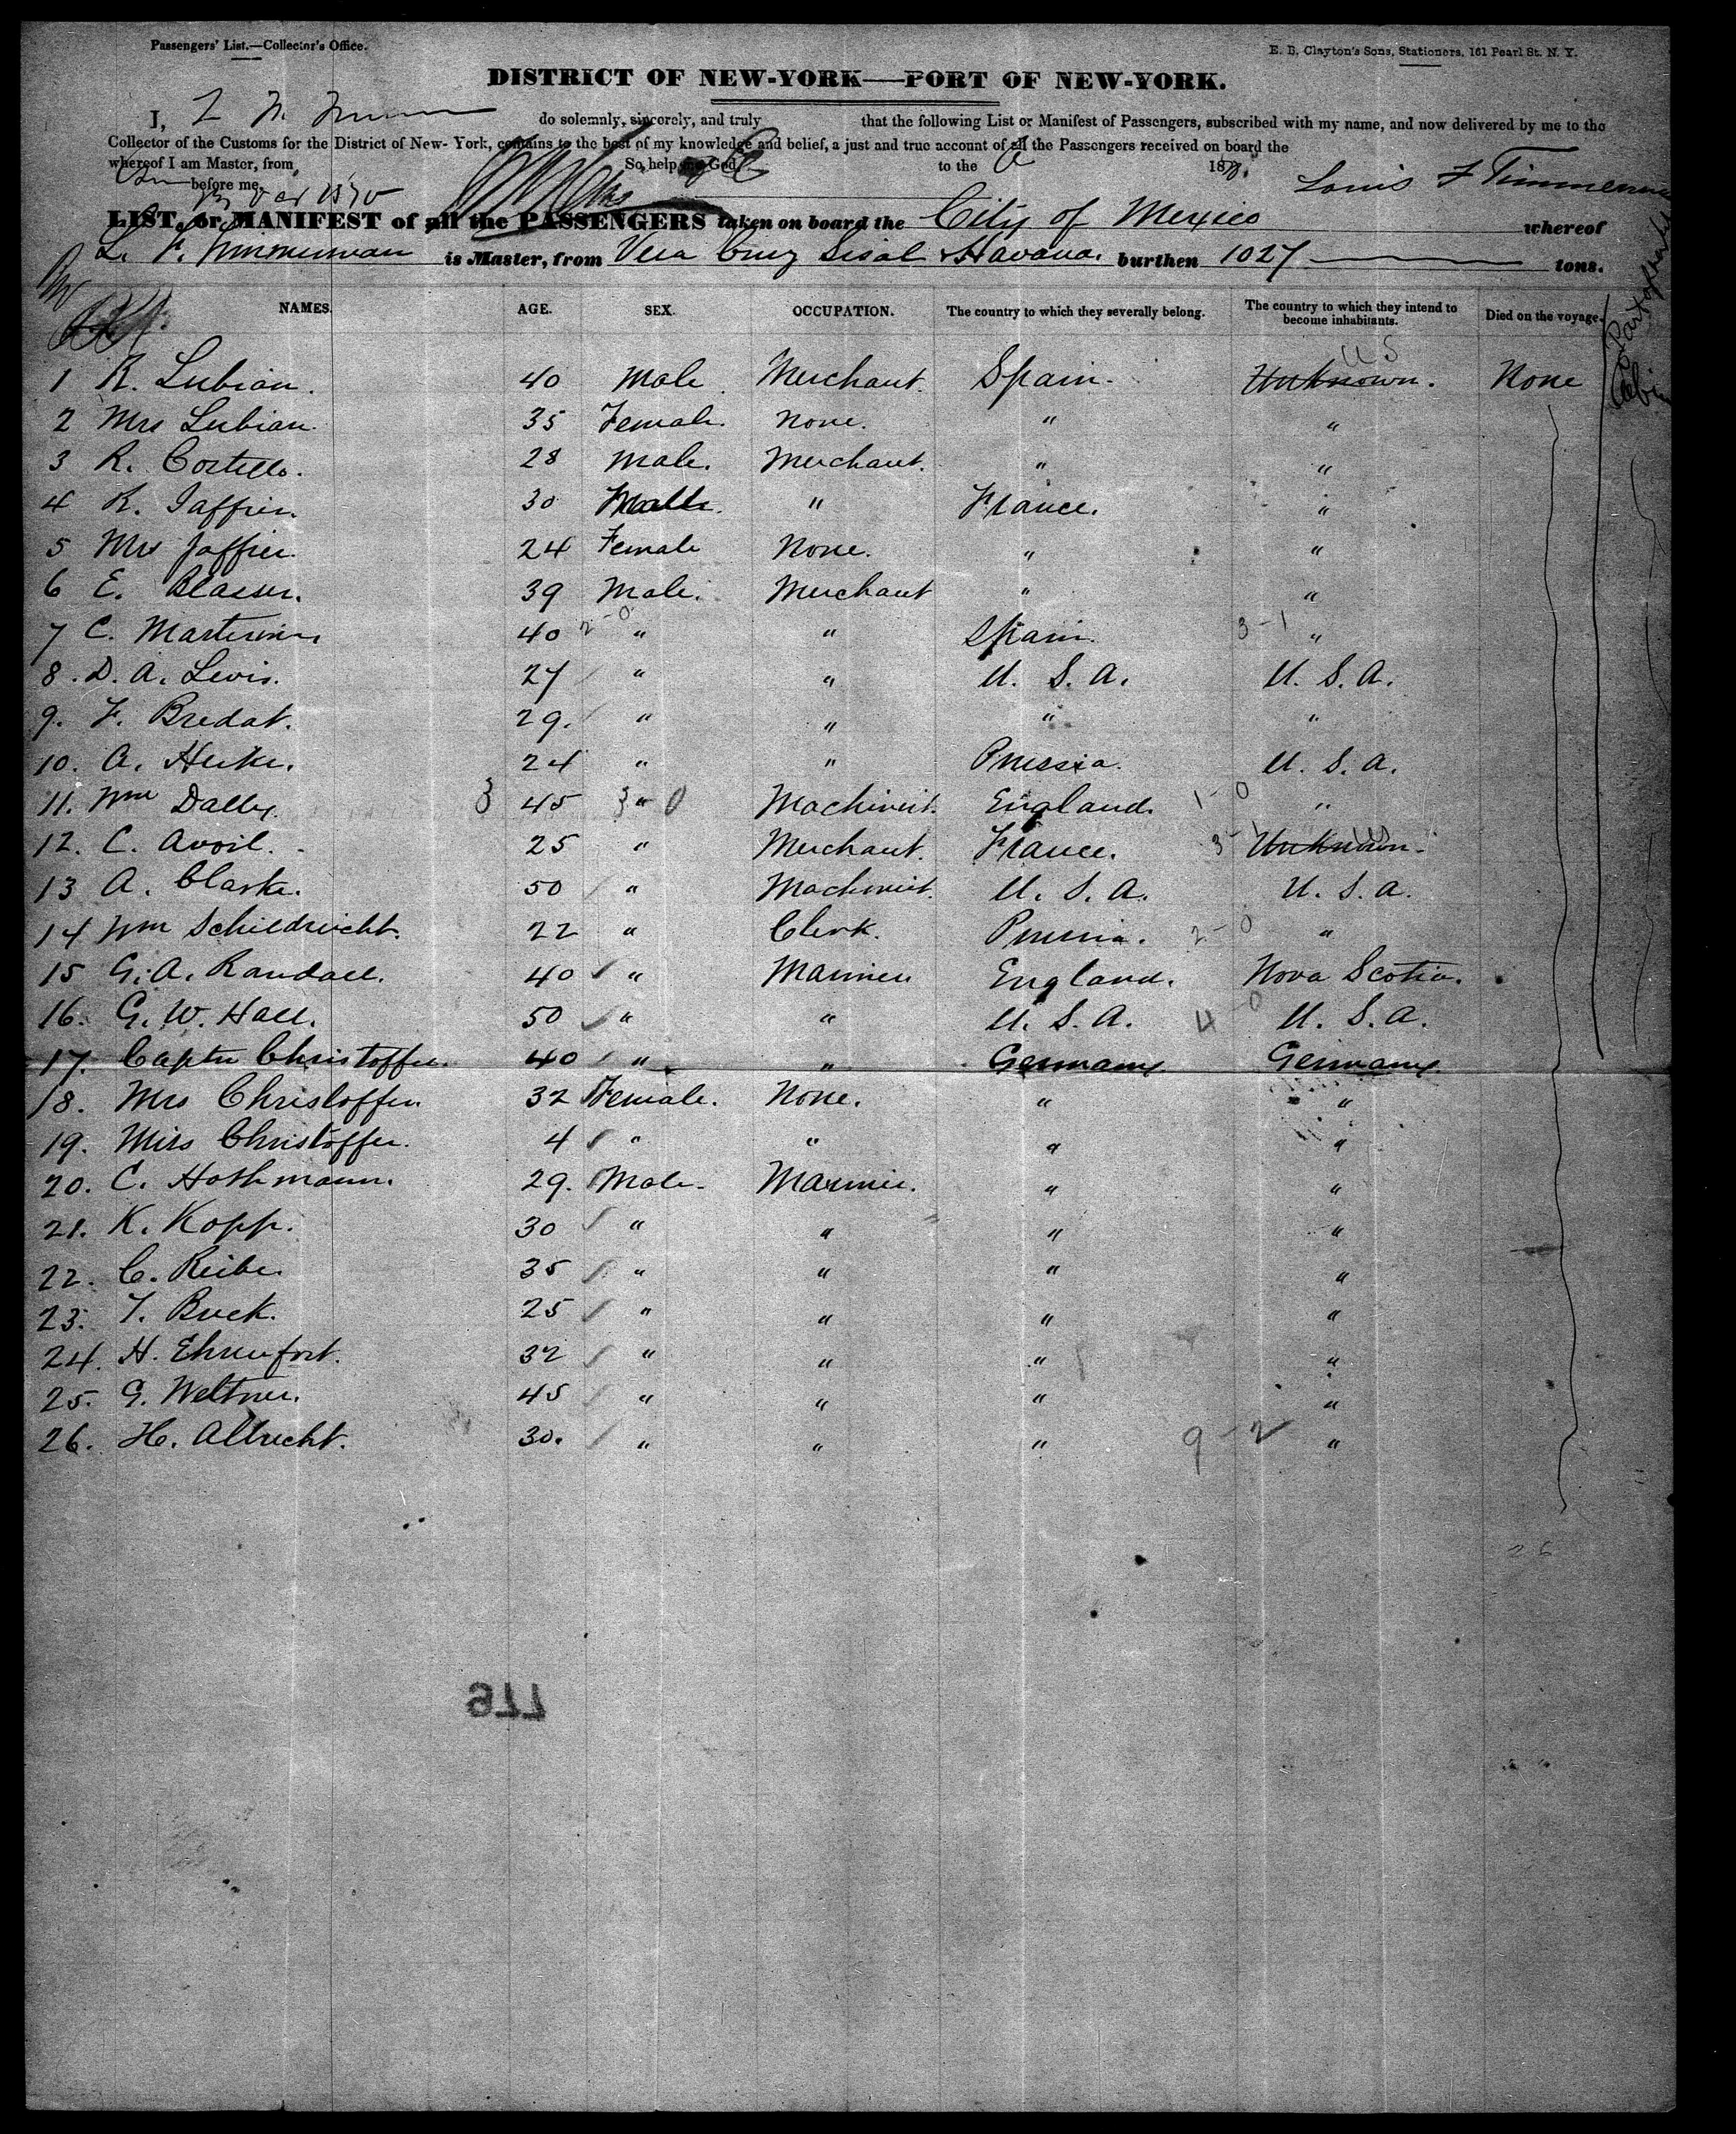 Passengers' List.—Collector's Office.
E. B. Clayton's Sons, Stationers, 161 Pearl St. N. Y.
DISTRICT OF NEW-YORK—PORT OF NEW-YORK.
I, do solemnly, sincerely, and truly that the following List or Manifest of Passengers, subscribed with my name, and now delivered by me to the
Collector of the Customs for the District of New-York, contains to the best of my knowledge and belief, a just and true account of all the Passengers received on board the
whereof I am Master, from So, help me God. to the 1870.
before me, 1870 Louis F Timmerman
LIST, or MANIFEST of all the PASSENGERS taken on board the City of Mexico whereof
L. F. Timmerman is Master, from Vera Cruz Sisal & Havana. burthen 1027 tons.
NAMES. AGE. SEX. OCCUPATION. The country to which they severally belong. The country to which they intend to become inhabitants. Died on the voyage.
U S
1 R. Lubian. 40 Male Merchant. Spain. Unknown. None
2 Mrs Lubian. 35 Female. None. " "
3 R. Costello. 28 Male. Merchant. " "
4 R. Jaffier. 30 Male. " France. "
5 Mrs Jaffier. 24 Female None. " "
6 E. 39 Male. Merchant " "
7 C. 40 2-0 " " Spain. 3-1 "
8. D. A. Lewis. 27 " " U. S. A. U. S. A.
9. F. Bredat. 29. " " " "
10. A. 24 " " Prussia. U. S. A.
11. Wm Dalby. 3 45 3 " 0 Machinist. England. 1-0 "
12. C. Avoil. 25 " Merchant. France. 3-1 Unknown. US
13 A. Clarke. 50 " Machinist. U. S. A. U. S. A.
14 Wm Schildwicht. 22 " Clerk. Prussia. 2-0 "
15 G. A. Randall. 40 " Mariner England. Nova Scotia.
16. G. W. Hall. 50 " " U. S. A. 4-0 U. S. A.
17. Captn Christoffer. 40 " " Germany Germany
18. Mrs Christoffer 32 Female. None. " "
19. Miss Christoffer. 4 " " " "
20. C. Hothmann. 29. Male. Mariner. " "
21. K. Kopp. 30 " " " "
22. C. Reiber 35 " " " "
23. T. Buck. 25 " " " "
24. H. Ehrenfort. 32 " " " "
25. G. Weltner. 45 " " " "
26. H. Albrecht. 30. " " " 9-2 "
26
776